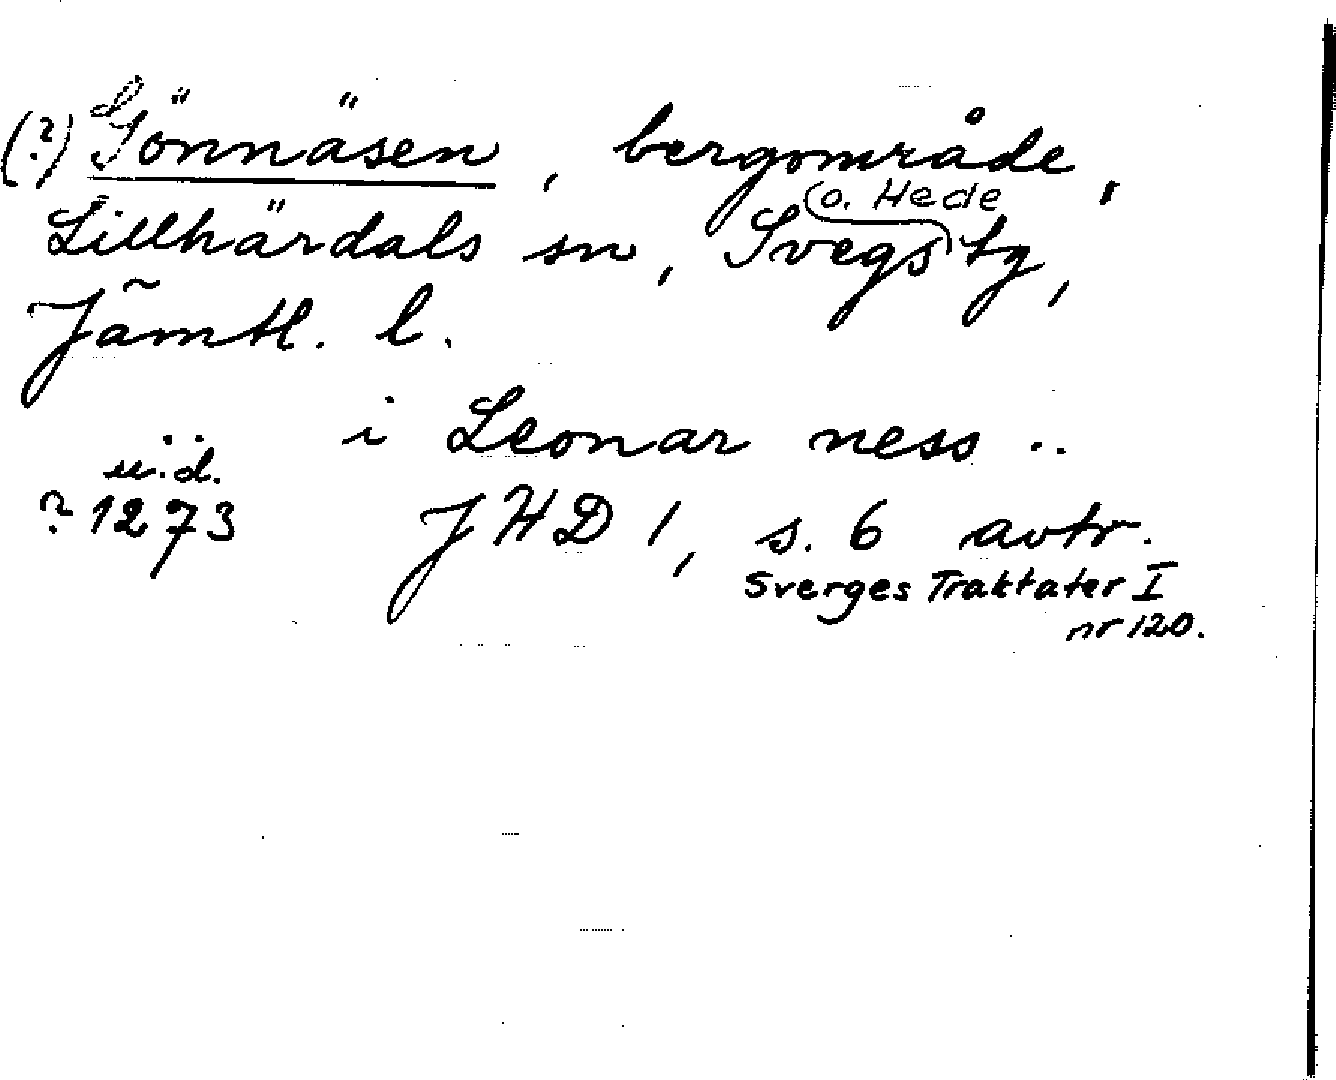 (?) Lönnäsen, bergområde,
Lillhärdals sn, Svegs o. Hede tg,
Jämtl. l.
i Leonar ness ..
u.d.
? 1273 JHD 1, s. 6 avtr.
Sverges Traktater I
nr 120.